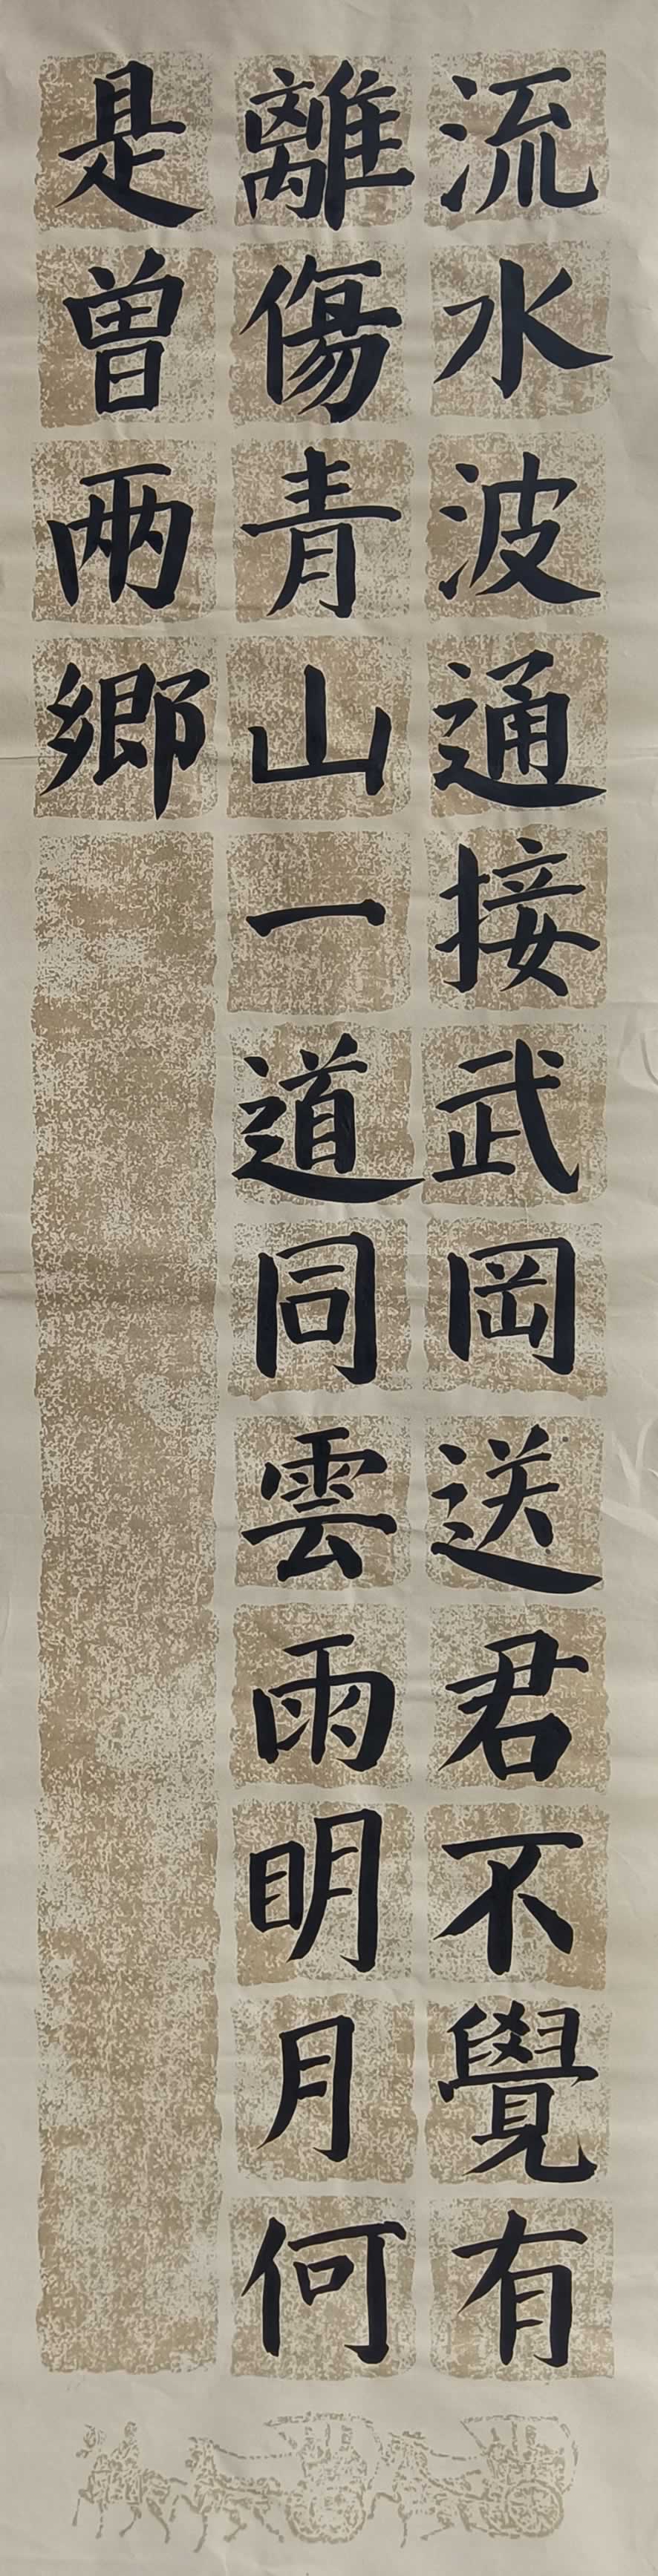 流水波通接武岡送君不覺有
離傷青山一道同雲雨明月何
是曾兩鄉